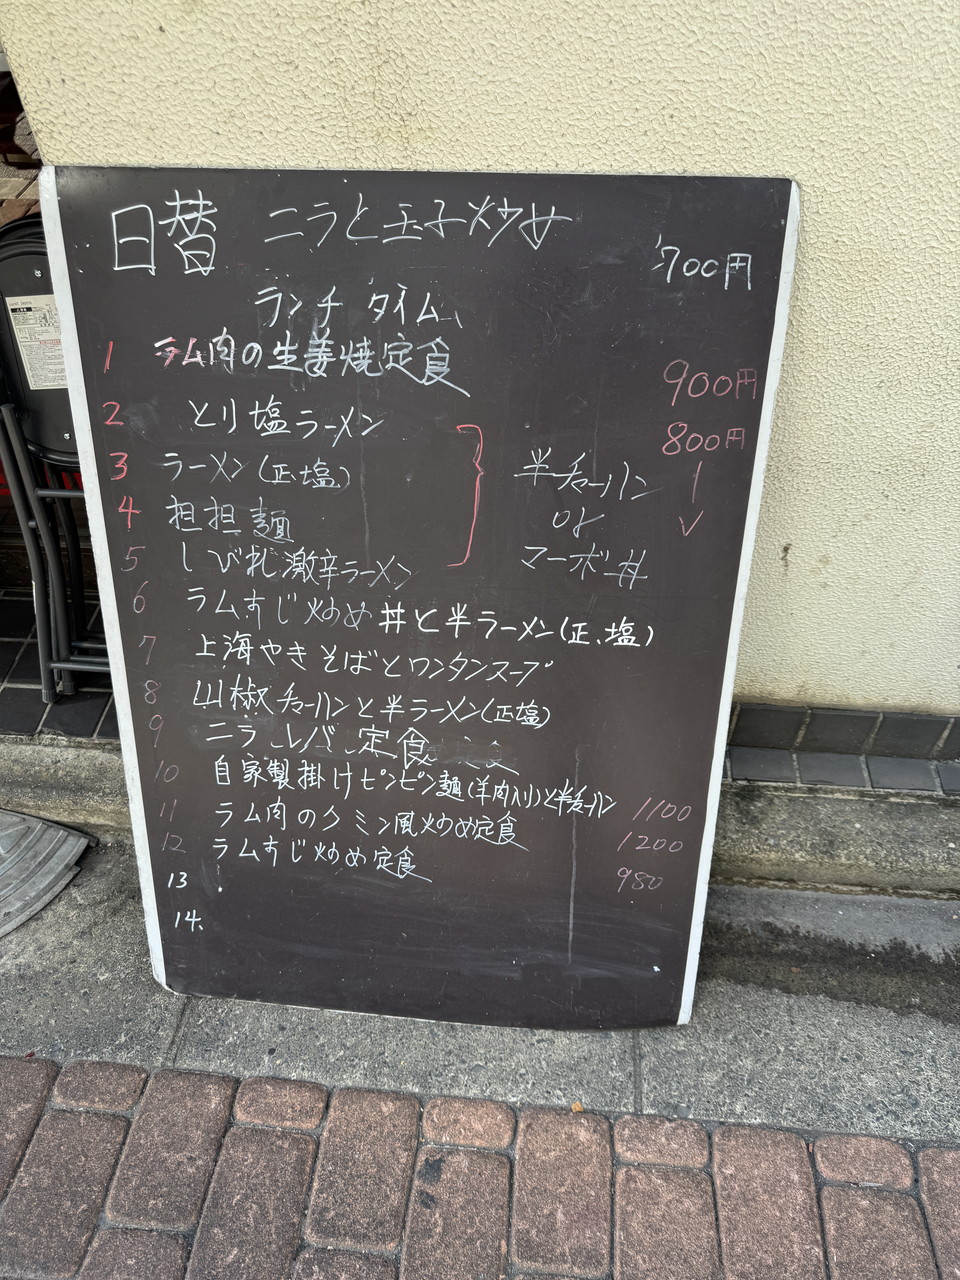 日替 ニラと玉子炒め 700円
ランチタイム
1 ラム肉の生姜焼定食 900円
2 とり塩ラーメン 800円
3 ラーメン(正.塩) 半チャーハン
4 担担麺 or
5 しびれ激辛ラーメン マーボ丼
6 ラムすじ炒め丼と半ラーメン(正.塩)
7 上海やきそばとワンタンスープ
8 山椒チャーハンと半ラーメン(正塩)
9 ニラレバ定食
10 自家製掛けビンビン麺(羊肉入り)と半チャーハン 1100
11 ラム肉のクミン風炒め定食 1200
12 ラムすじ炒め定食 980
13.
14.